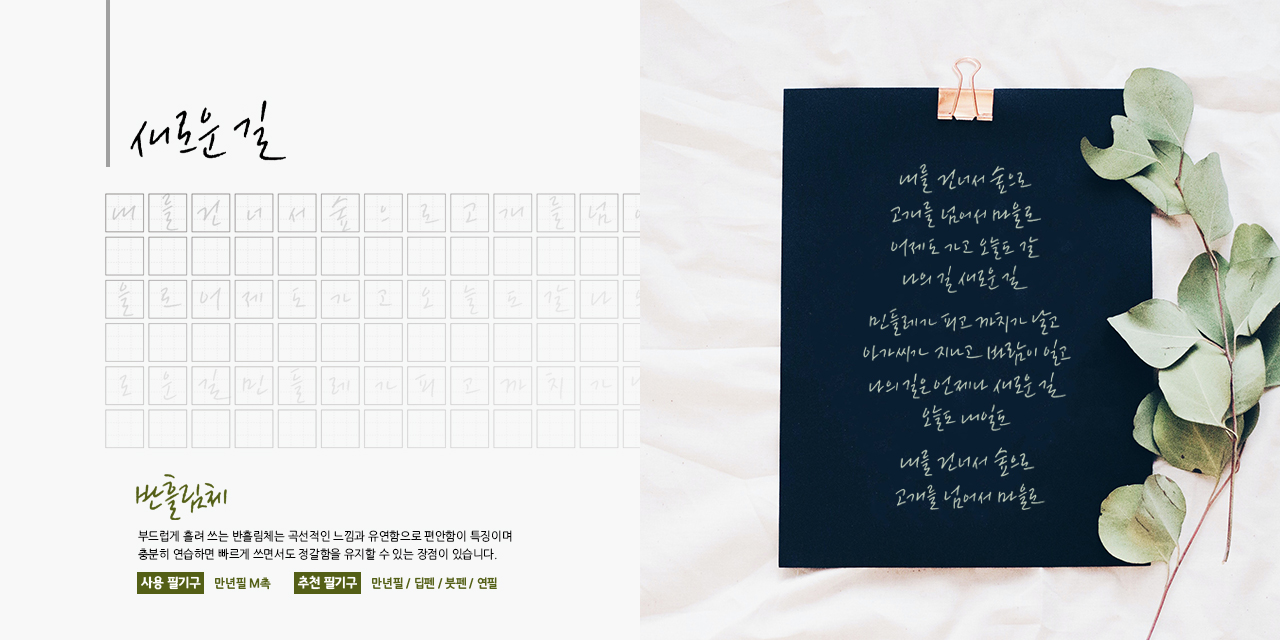 새로운 길
내를 건너서 숲으로 고개를 넘어
을로 어제도 가고 오늘도 갈 나의
로운 길 민들레가 피고 까치가 날
반흘림체
부드럽게 흘려 쓰는 반흘림체는 곡선적인 느낌과 유연함으로 편안함이 특징이며
충분히 연습하면 빠르게 쓰면서도 정갈함을 유지할 수 있는 장점이 있습니다.
사용 필기구 만년필 M촉 추천 필기구 만년필 / 딥펜 / 붓펜 / 연필
내를 건너서 숲으로
고개를 넘어서 마을로
어제도 가고 오늘도 갈
나의 길 새로운 길
민들레가 피고 까치가 날고
아가씨가 지나고 바람이 일고
나의 길은 언제나 새로운 길
오늘도 내일도
내를 건너서 숲으로
고개를 넘어서 마을로